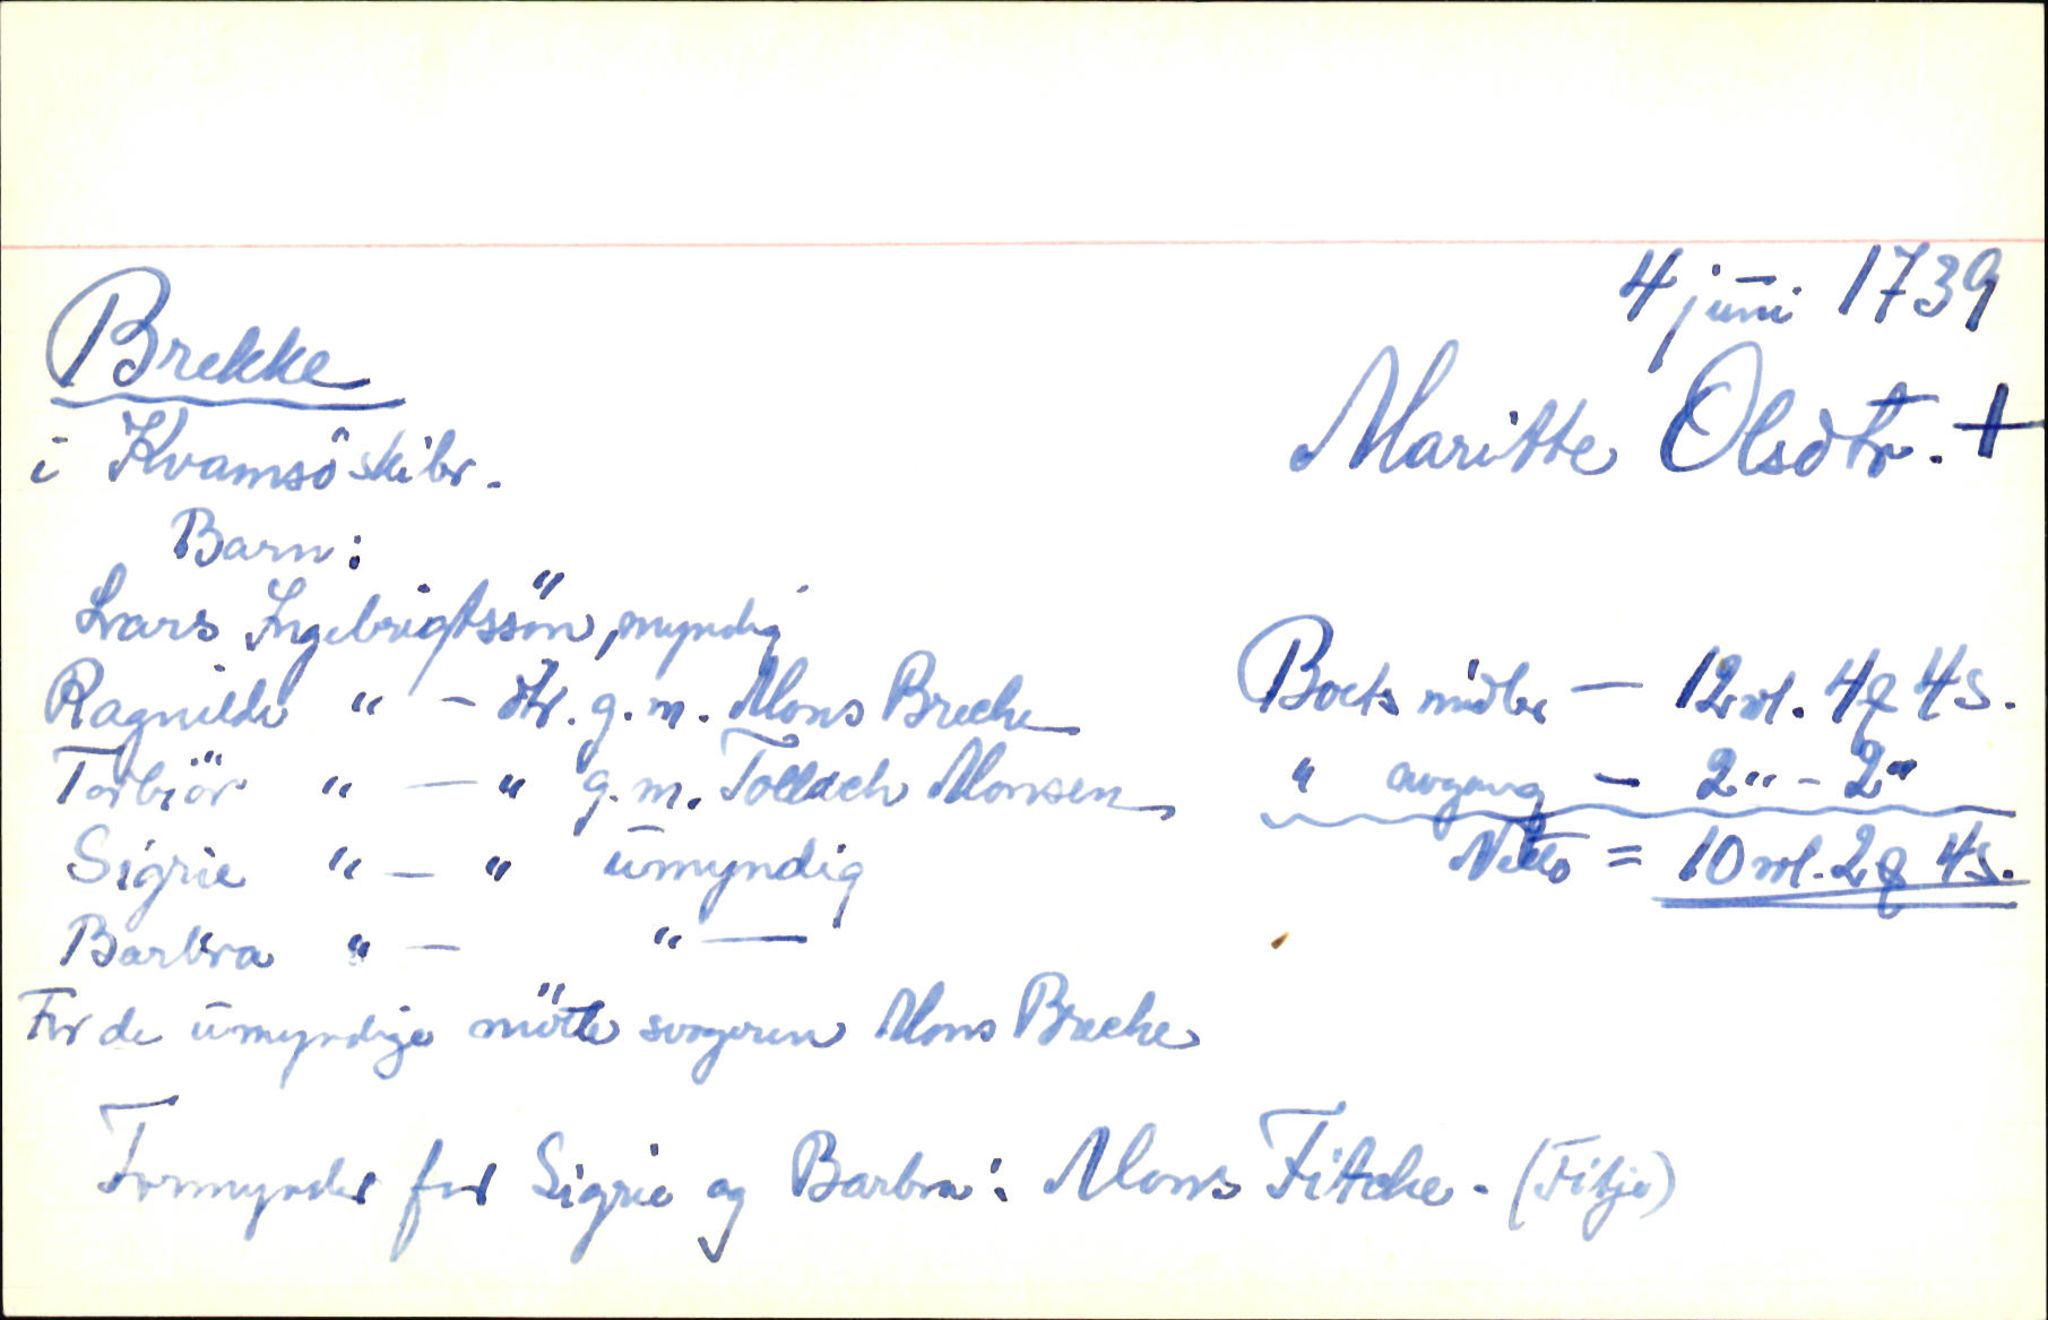 4 juni 1739
Brekke
Maritte Olsdtr. +
i Kvamsö skibr.
Barn:
Lars Ingebrigtssön, myndig
Ragnilde " - dtr. g. m. Mons Breche
Boets midler — 12 rdl. 4 ϙ 4 s.
Torbiör " — " g. m. Tollach Monsen
" avgang — 2 " - 2 "
Sigrie " — " umyndig
Netto = 10 rdl. 2 ϙ 4 s.
Barbra " — " —
For de umyndige mötte svogeren Mons Breche
Formynder for Sigrie og Barbra: Mons Fitche. (Fitje)